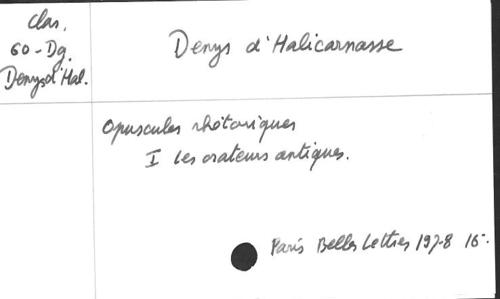 Clas.
60-Dg.
Denys d'Hal.
Denys d'Halicarnasse
Opuscules rhétoriques
I les orateurs antiques.
Paris Belles Lettres 1978 16-.